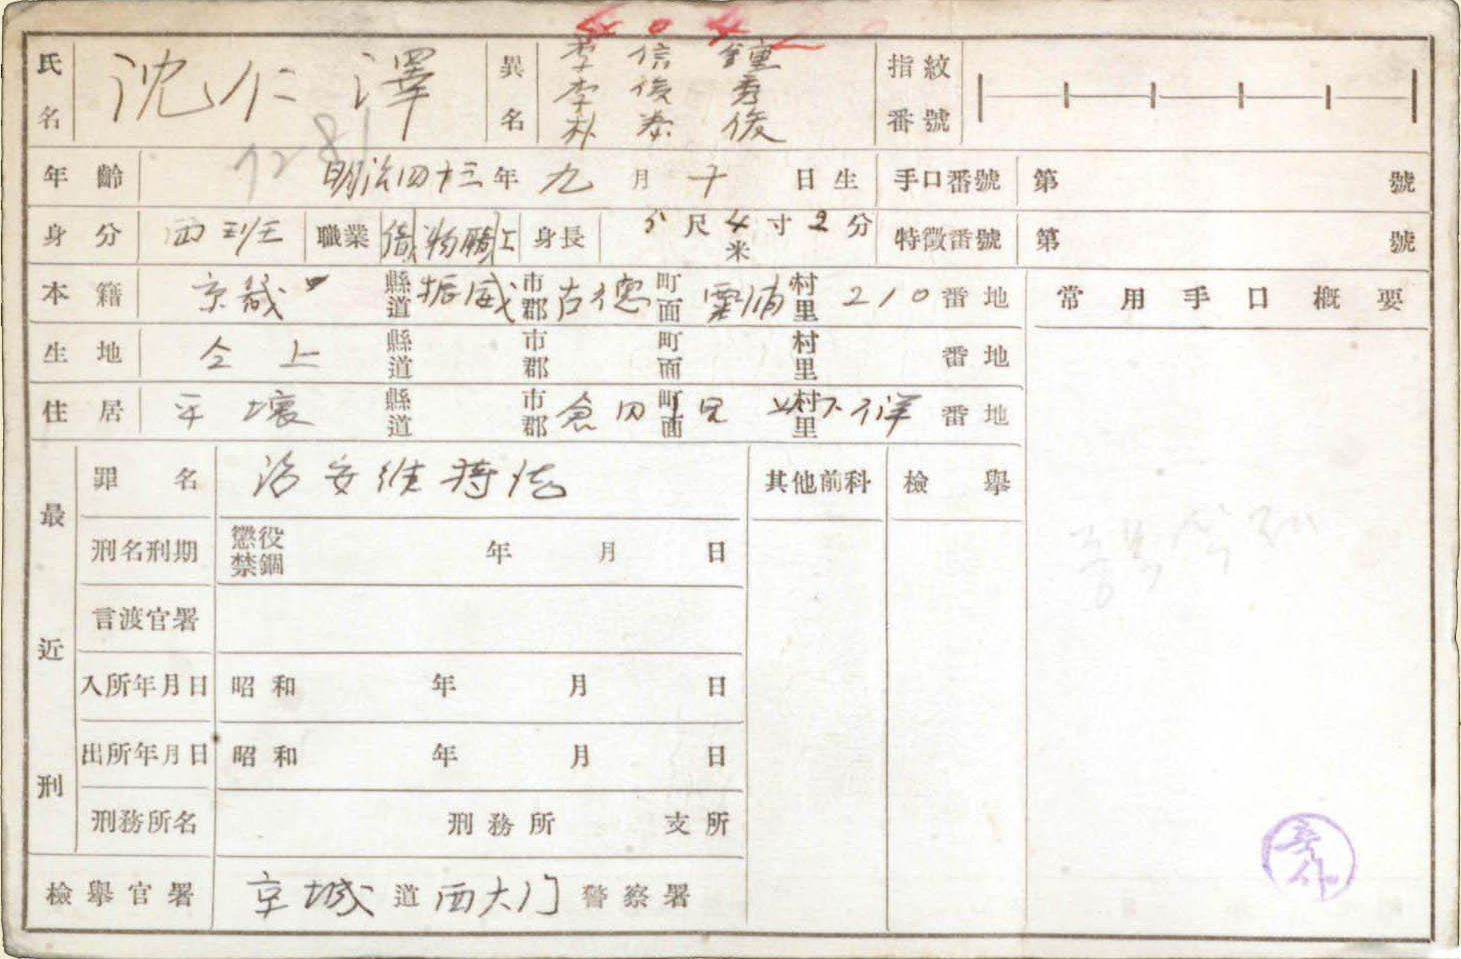 氏名 沈仁澤 異名 李信鍾 指紋番號
李俊秀
朴泰俊
年齡 明治四十三年九月十日生 手口番號 第 號
身分 両班 職業 貨物購上 身長 5尺4寸2分 米 特徵番號 第 號
本籍 京畿 縣道 振威 市郡 古德 町面 里 村里 210番地 常用手口概要
生地 仝上 縣道 市郡 町面 村里 番地
住居 平壤 縣道 市郡 倉田 町面 以下不詳 村里 番地
最近刑
罪名 治安維持法 其他前科 檢擧
刑名刑期 懲役 禁錮 年 月 日
言渡官署
入所年月日 昭和 年 月 日
出所年月日 昭和 年 月 日
刑務所名 刑務所 支所
檢擧官署 京城道西大门警察署